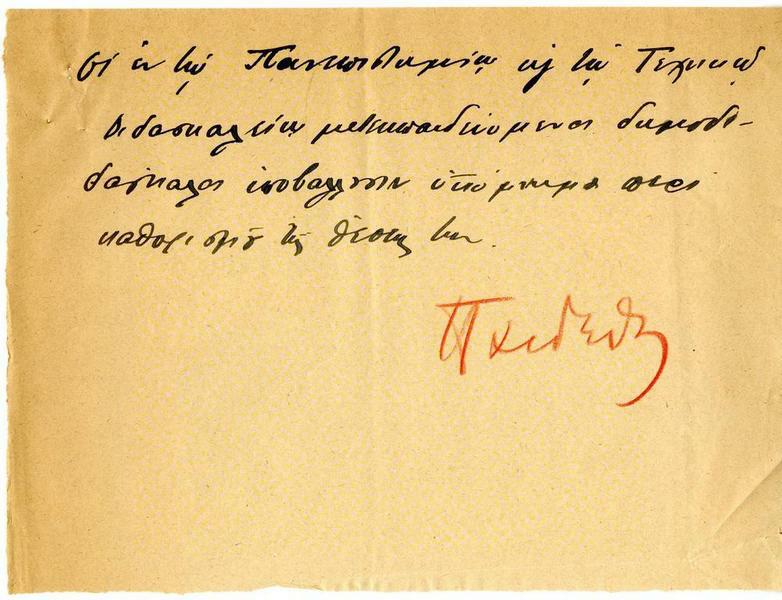 Οἱ ἐν τῷ Πανεπιστημίῳ καὶ τῷ Τεχνικῷ
Διδασκαλείῳ μετεκπαιδευόμενοι δημοδι-
δάσκαλοι ὑποβάλλουσιν ὑπόμνημα περὶ
καθορισμοῦ τῆς θέσεώς των.